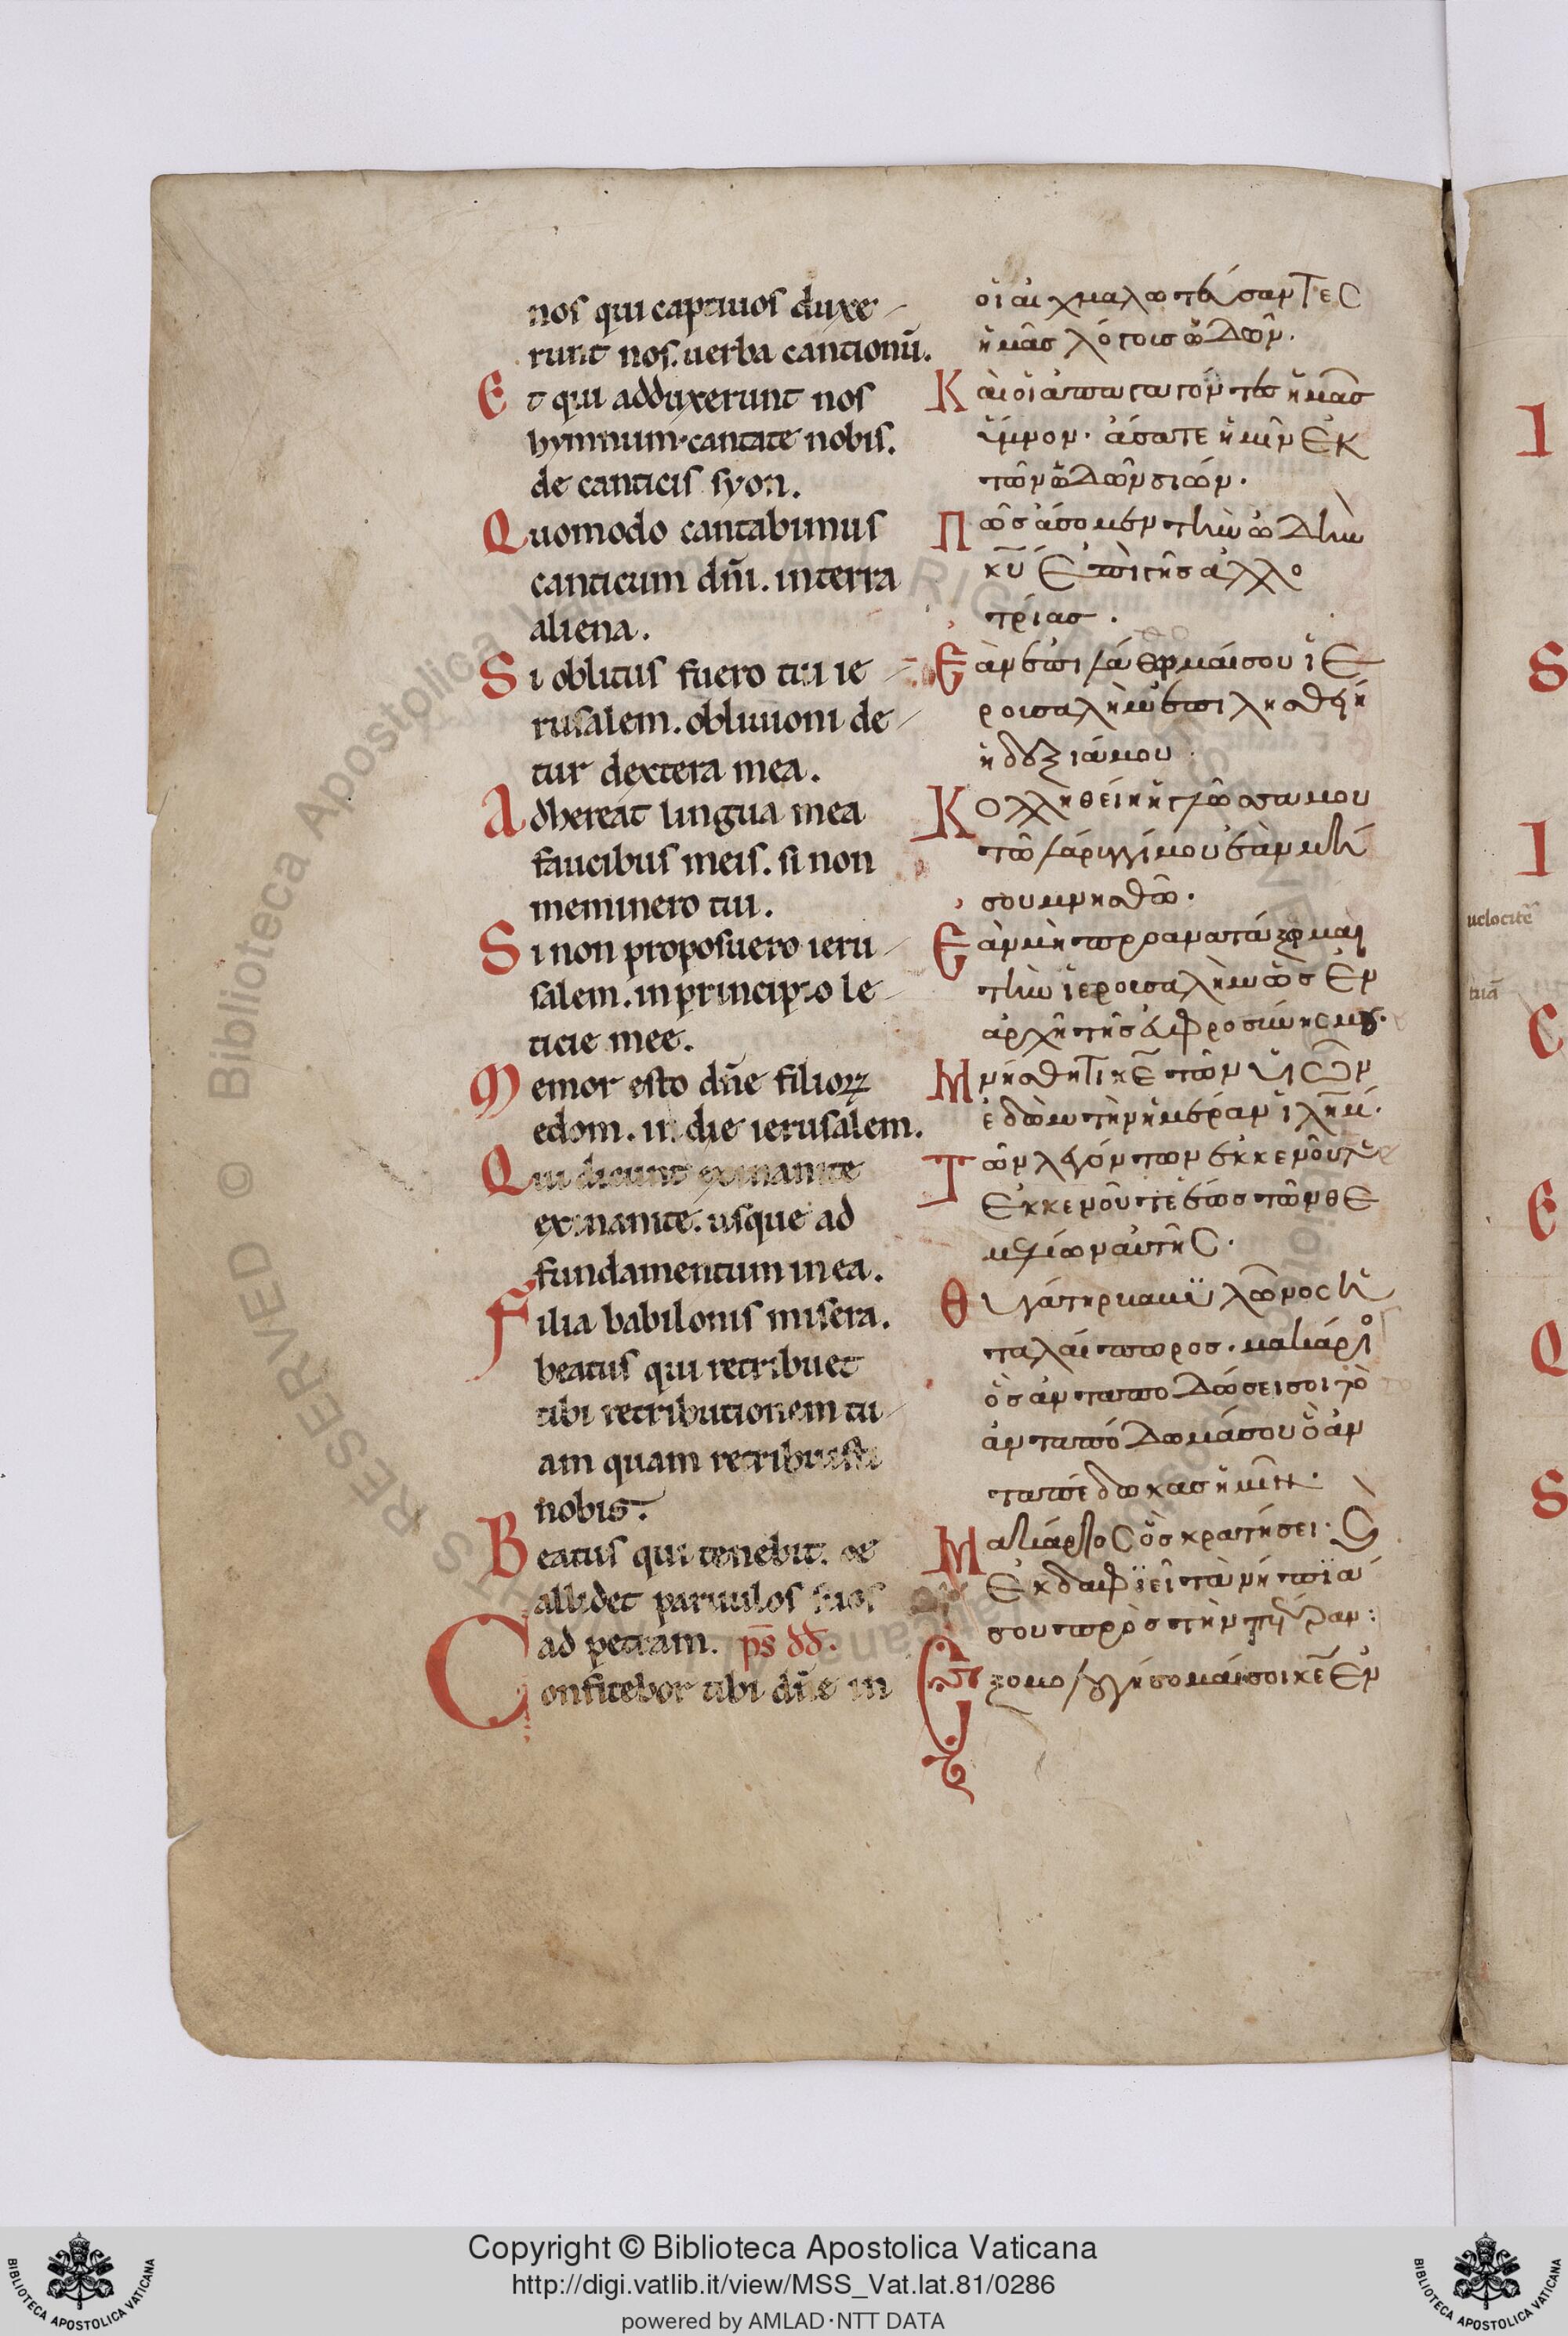 nos qui captiuos duxe
runt nos. uerba cantionū.
Et qui adduxerunt nos
hymnum. cantate nobis.
de canticis syon.
Quomodo cantabimus
canticum dñi. in terra
aliena.
Si oblitus fuero tui ie
rusalem. obliuioni de
tur dextera mea.
Adhereat lingua mea
faucibus meis. si non
meminero tui.
Si non proposuero ieru
salem. in principio le
ticie mee.
Memor esto dñe filioꝝ
edom. in die ierusalem.
Qui dicunt exinanite
exinanite. usque ad
fundamentum in ea.
Filia babilonis misera.
beatus qui retribuet
tibi retributionem tu
am quam retribuisti
nobis.
Beatus qui tenebit. &
allidet paruulos suos
ad petram. ps̄ dd.
Confitebor tibi dñe in
οἱ αἰχμαλωτεύσαντες
ἡμᾶσ λόγοισ ὠδῶν.
Καὶ οἱ ἀπαγαγόντεσ ἡμᾶσ
ὕμνον. ἄσατε ἡμῖν ἐκ
τῶν ὠδῶν σιών.
Πῶσ ἄσομεν τὴν ὠδὴν
κ̄ῡ ἐπὶ γῆσ ἀλλο
τρίασ.
Ἐὰν ἐπιλάθωμαί σου ἱε
ρουσαλὴμ ἐπιλησθείη
ἡ δεξιά μου.
Κολληθείη ἡ γλῶσσα μου
τῶ λάρυγγί μου ἐὰν μή
σου μνησθῶ.
Ἐὰν μὴ προανατάξωμαι
τὴν ἱερουσαλὴμ ὡσ ἐν
ἀρχῆ τῆσ εὐφροσύνης μου.
Μνήσθητι κ̄ε τῶν υἱῶν
ἐδὼμ τὴν ἡμέραν ἰλημ̄.
Τῶν λεγόντων ἐκκενοῦτε
ἐκκενοῦτε ἕωσ τῶν θε
μελίων αὐτῆς.
Θυγάτηρ βαβυλῶνος ἡ
ταλαίπωροσ. μακάριο
ὃσ ἀνταποδώσει σοι τὸ
ἀνταπόδομά σου ὃ ἀν
ταπέδωκασ ἡμῖν.
Μακάριος ὃσ κρατήσει. καὶ
ἐδαφιεῖ τὰ νήπιά
σου πρὸσ τὴν πέτραν:
Ἐξομολογήσομαί σοι κ̄ε ἐν
I
S
I
uelocit̄
tuā
C
E
Q
S
© Biblioteca Apostolica Vaticana ALL RIGHTS RESERVED
Copyright © Biblioteca Apostolica Vaticana
http://digi.vatlib.it/view/MSS_Vat.lat.81/0286
powered by AMLAD·NTT DATA
BIBLIOTECA APOSTOLICA VATICANA
BIBLIOTECA APOSTOLICA VATICANA